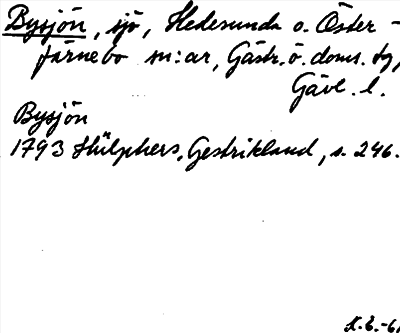 Bysjön, sjö, Hedesunda o. Öster-
färnebo sn:ar, Gästr. ö. doms. tg,
Gävl. l.
Bysjön
1793 Hülphers, Gestrikland, s. 246.
K.E.-6